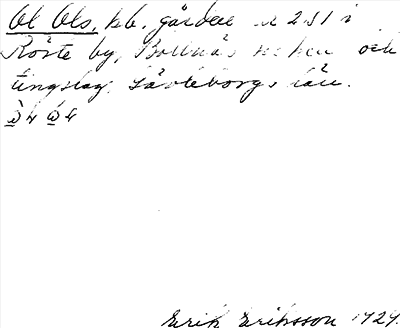 Ol Ols, hb. gården nr 2 s1 i
Röste by, Bollnäs socken och
tingslag Gävleborgs län.
Erik Eriksson 1929.